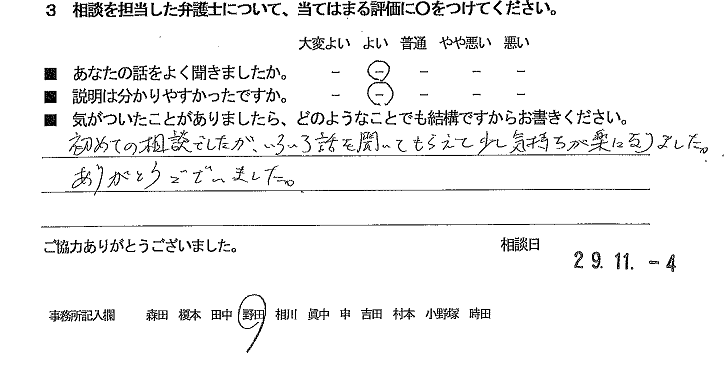 3 相談を担当した弁護士について、当てはまる評価に○をつけてください。
大変よい よい 普通 やや悪い 悪い
■ あなたの話をよく聞きましたか。 － － － － －
■ 説明は分かりやすかったですか。 － － － － －
■ 気がついたことがありましたら、どのようなことでも結構ですからお書きください。
初めての相談でしたが、いろいろ話を聞いてもらえて少し気持ちが楽になりました。
ありがとうございました。
ご協力ありがとうございました。 相談日 29.11.-4
事務所記入欄 森田 榎本 田中 野田 相川 眞中 申 吉田 村本 小野塚 時田